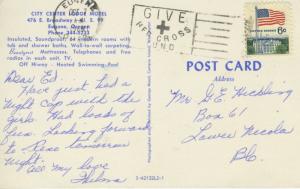 CITY CENTER LODGE MOTEL
476 E. Broadway
Eugene, Oregon
Phone 344-5233
Insulated, Soundproof, modern rooms with
tub and shower baths. Wall-to-wall carpeting.
Mattresses. Telephones and free
radios in each unit. TV.
Off Hiway - Heated Swimming Pool
GIVE
RED CROSS
FUND
6c
POST CARD
Address
Dear Ed
Have just had a
night cap with the
girls. Had loads of
fun. Looking forward
to Reno tomorrow
night.
All my love
Thelma
Mr. G.E.
Box 61
Lower Nicola
BC